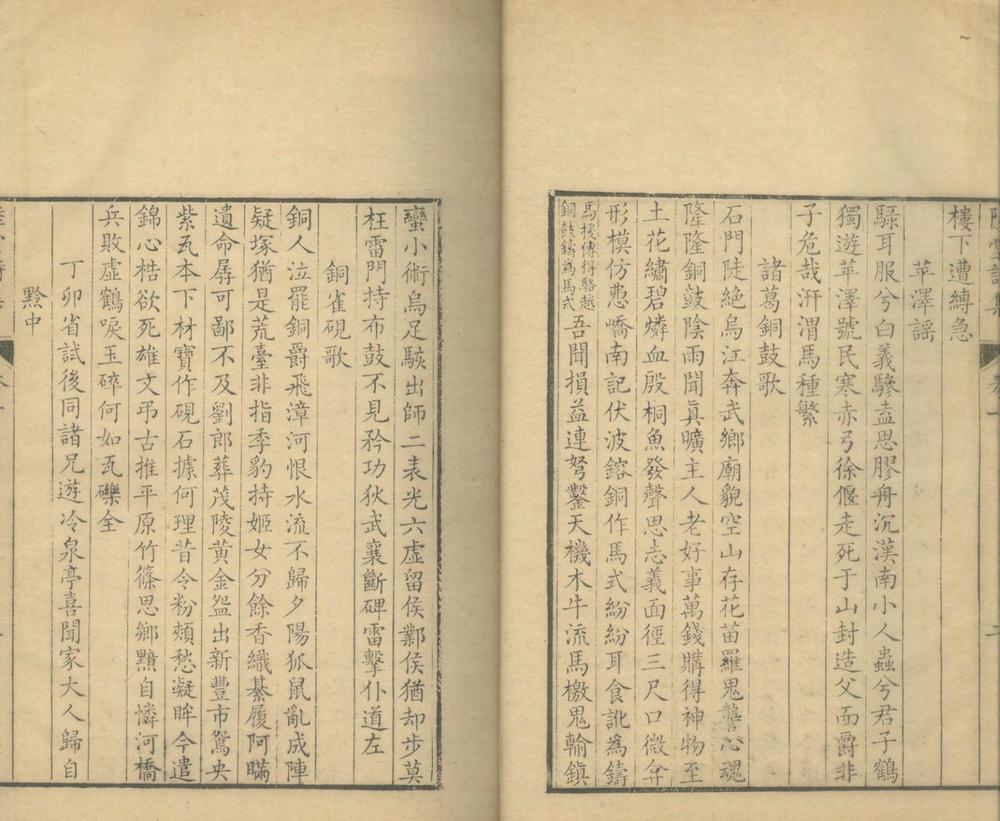 樓下遭縛急
苹澤謠
騄耳服兮白義驂盍思膠舟沉漢南小人蟲兮君子鶴
獨遊苹澤號民寒赤弓徐偃走死于山封造父而爵非
子危哉汧渭馬種繁
諸葛銅鼓歌
石門陡絶烏江奔武鄉廟貌空山存花苗羅鬼讋心魂
隆隆銅鼓陰雨聞眞曠主人老好事萬錢購得神物至
土花繡碧燐血殷桐魚發聲思志義面徑三尺口微弇
形模仿悊嶠南記伏波鎔銅作馬式紛紛耳食訛為鑄
馬援傳得駱越
銅鼓鑄為馬式
吾聞損益連弩鑿天機木牛流馬檄鬼輸鎮
蠻小術烏足駭出師二表光六虛留侯酇侯猶却步莫
枉雷門持布鼓不見矜功狄武襄斷碑雷擊仆道左
銅雀硯歌
銅人泣罷銅爵飛漳河恨水流不歸夕陽狐鼠亂成陣
疑塚猶是荒臺非指季豹持姬女分餘香織綦履阿瞞
遺命孱可鄙不及劉郎葬茂陵黃金盌出新豐市鴛央
紫瓦本下材寶作硯石據何理昔令粉頰愁凝眸今遣
錦心梏欲死雄文弔古推平原竹篠思鄉黯自憐河橋
兵敗虛鶴唳玉碎何如瓦礫全
丁卯省試後同諸兄遊冷泉亭喜聞家大人歸自
黔中